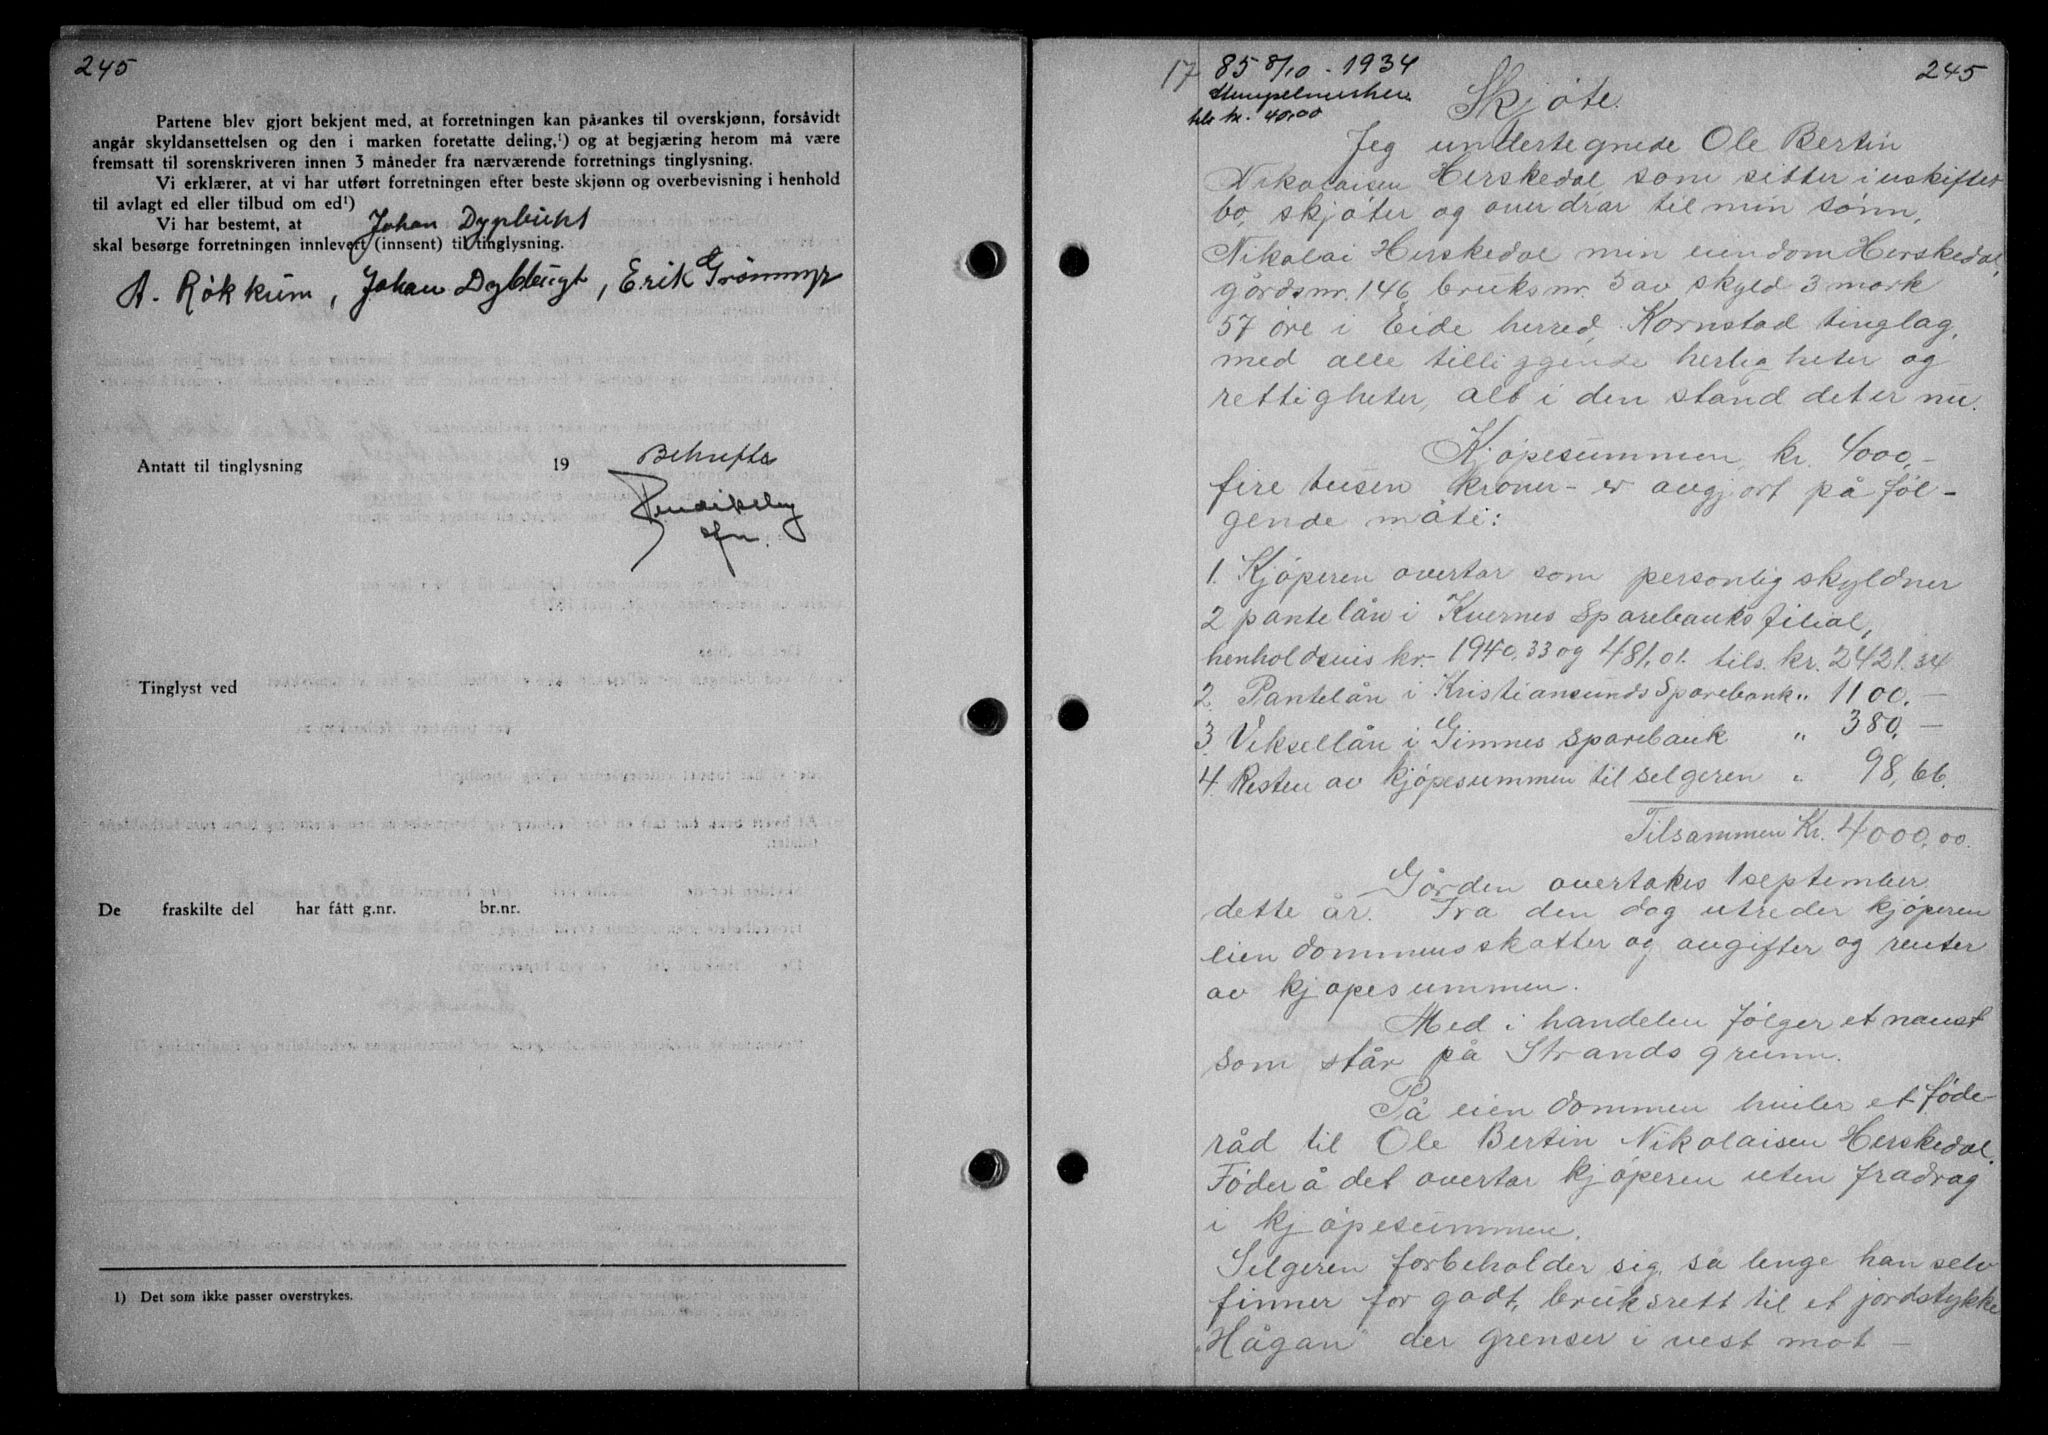 245
Partene blev gjort bekjent med, at forretningen kan påankes til overskjønn, forsåvidt
angår skyldansettelsen og den i marken foretatte deling,¹) og at begjæring herom må være
fremsatt til sorenskriveren innen 3 måneder fra nærværende forretnings tinglysning.
Vi erklærer, at vi har utført forretningen efter beste skjønn og overbevisning i henhold
til avlagt ed eller tilbud om ed¹)
Vi har bestemt, at Johan Dypbukt
skal besørge forretningen innlevert (innsent) til tinglysning.
A. Røkkum, Johan Dybbugt, Erik Grømmyr
Antatt til tinglysning 19
Bekreftes
Tinglyst ved
De fraskilte del har fått g.nr. br.nr.
1) Det som ikke passer overstrykes.
17 85 8/10 - 1934 245
Stempelmerker
kr. 40,00
Skjøte.
Jeg undertegnede Ole Bertin
Nikolaisen Herskedal som sitter i uskiftet
bo, skjøter og overdrar til min sønn,
Nikolai Herskedal min eiendom Herskedal,
gårdsnr. 146 bruksnr. 5 av skyld 3 mark
57 øre i Eide herred, Kornstad tinglag,
med alle tilliggende herligheter og
rettigheter, alt i den stand det er nu.
Kjøpesummen, kr. 4000,-
fire tusen kroner - er avgjort på føl-
gende måte:
1. Kjøperen overtar som personlig skyldner
2 pantelån i Kvernes Sparebanks filial,
henholdsvis kr. 1940,33 og 481,01. tils. kr. 2421.34
2. Pantelån i Kristiansunds Sparebank " 1100,-
3. Veksellån i Gimnes Sparebank " 380,-
4. Resten av kjøpesummen til selgeren " 98,66.
Tilsammen Kr. 4000,00.
Gården overtakes 1 september
dette år. Fra den dag utreder kjøperen
eiendommens skatter og avgifter og renter
av kjøpesummen.
Med i handelen følger et naust
som står på Strands grunn.
På eiendommen hviler et føde-
råd til Ole Bertin Nikolaisen Herskedal.
Føderådet overtar kjøperen uten fradrag
i kjøpesummen.
Selgeren forbeholder sig, så lenge han selv
finner for godt, bruksrett til et jordstykke
"Hågan" der grenser i vest mot -